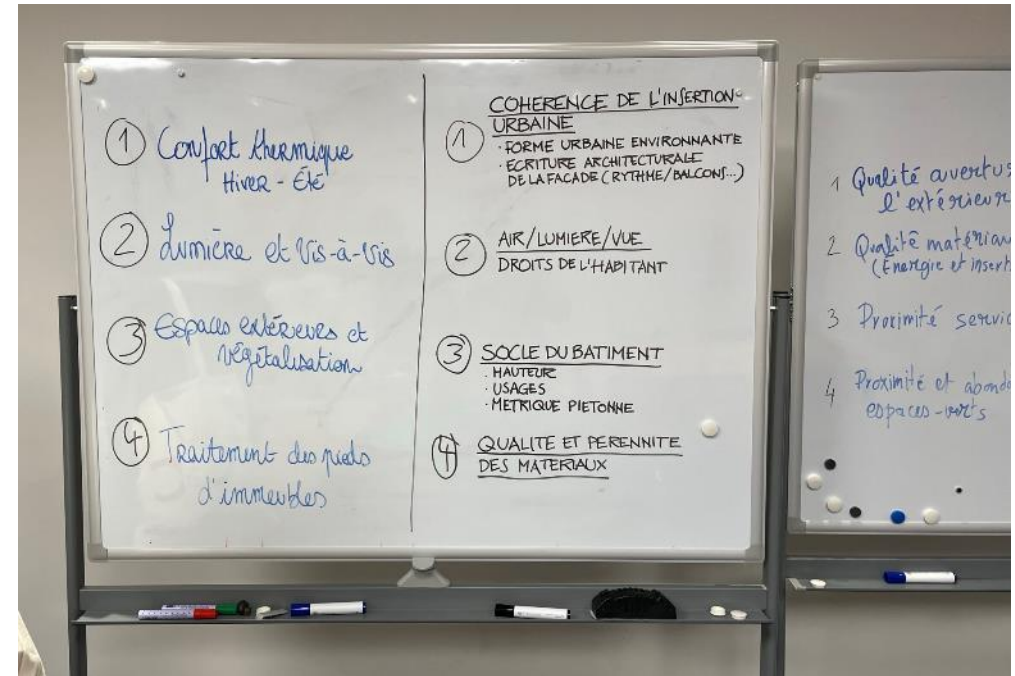 1 Confort thermique
Hiver - Été
2 Lumière et Vis-à-Vis
3 Espaces extérieurs et
végétalisation
4 Traitement des pieds
d'immeubles
COHERENCE DE L'INSERTION
URBAINE
1
· FORME URBAINE ENVIRONNANTE
· ECRITURE ARCHITECTURALE
DE LA FACADE (RYTHME/BALCONS...)
2 AIR/LUMIERE/VUE
DROITS DE L'HABITANT
3 SOCLE DU BATIMENT
· HAUTEUR
· USAGES
· METRIQUE PIETONNE
4 QUALITE ET PERENNITE
DES MATERIAUX
1 Qualité
l'extérieur
2 Qualité
(Énergie et
3 Proximité
4 Proximité et
espaces-verts